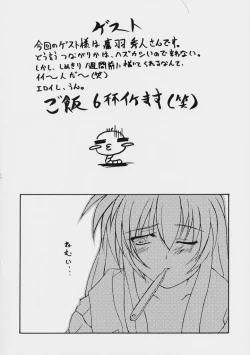 ゲスト
今回のゲスト様は鷹羽秀人さんです。
どういうつながりかは、ハズカシいので言わない。
しかし、しめきり1週間前に描いてくれるなんて、
イイ〜人だ〜(笑)
エロイし、うん。
ご飯6杯イケます(笑)
ねむい…